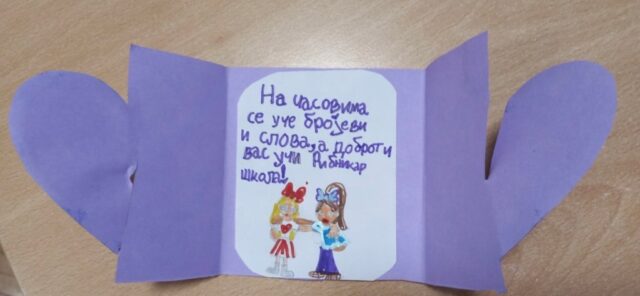 На часовима
се уче бројеви
и слова, а доброти
вас учи Рибникар
школа!